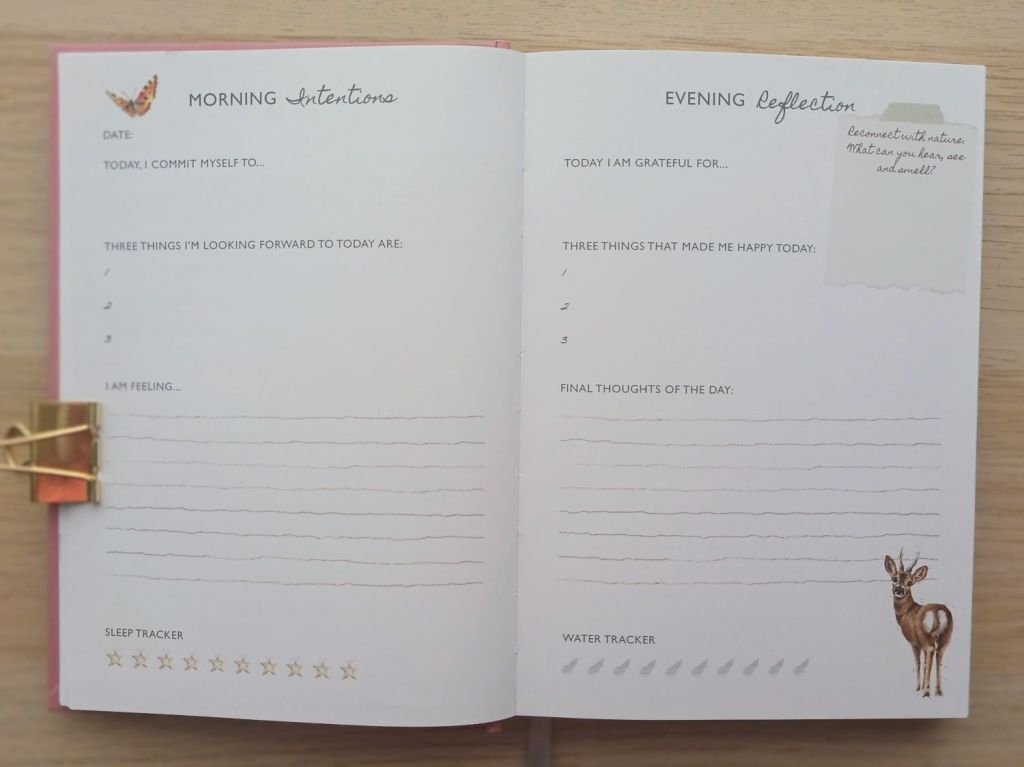 MORNING Intentions
DATE:
TODAY, I COMMIT MYSELF TO...
THREE THINGS I'M LOOKING FORWARD TO TODAY ARE:
1
2
3
I AM FEELING...
SLEEP TRACKER
EVENING Reflection
Reconnect with nature:
What can you hear, see
and smell?
TODAY I AM GRATEFUL FOR...
THREE THINGS THAT MADE ME HAPPY TODAY:
1
2
3
FINAL THOUGHTS OF THE DAY:
WATER TRACKER